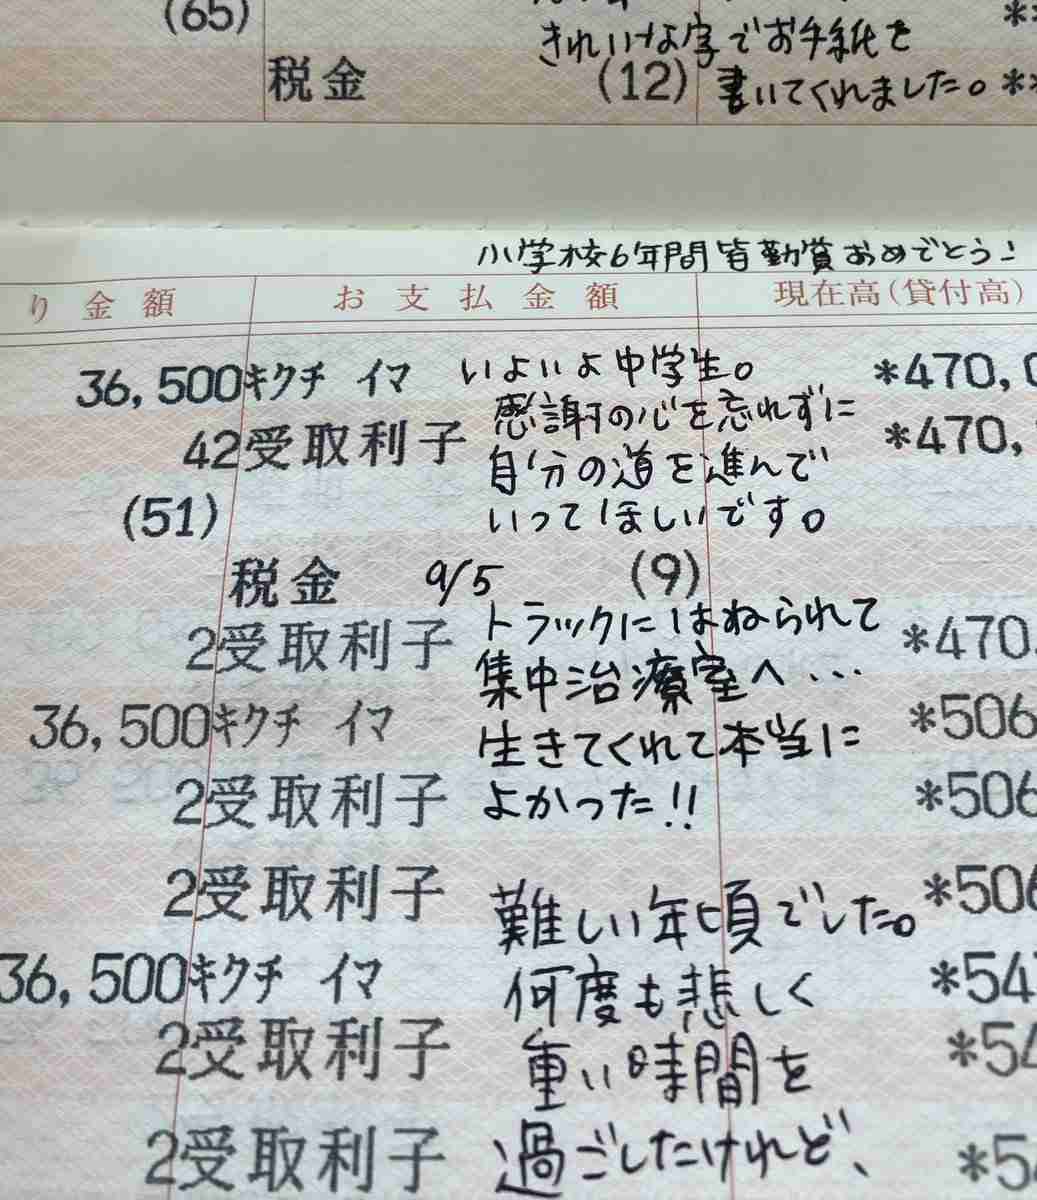 (65)
きれいな字でお手紙を
税金 (12) 書いてくれました。 **
小学校6年間皆勤賞おめでとう!
り金額 お支払金額 現在高(貸付高)
36,500 キクチ イマ いよいよ中学生。 *470,0
感謝の心を忘れずに
42 受取利子 *470,
自分の道を進んで
(51) いってほしいです。
税金 9/5 (9)
トラックにはねられて
2 受取利子 *470
集中治療室へ...
36,500 キクチ イマ *506
生きてくれて本当に
2 受取利子 よかった!! *506
2 受取利子 *506
難しい年頃でした。
36,500 キクチ イマ *54
何度も悲しく
2 受取利子 *54
重い時間を
2 受取利子 過ごしたけれど、 *54